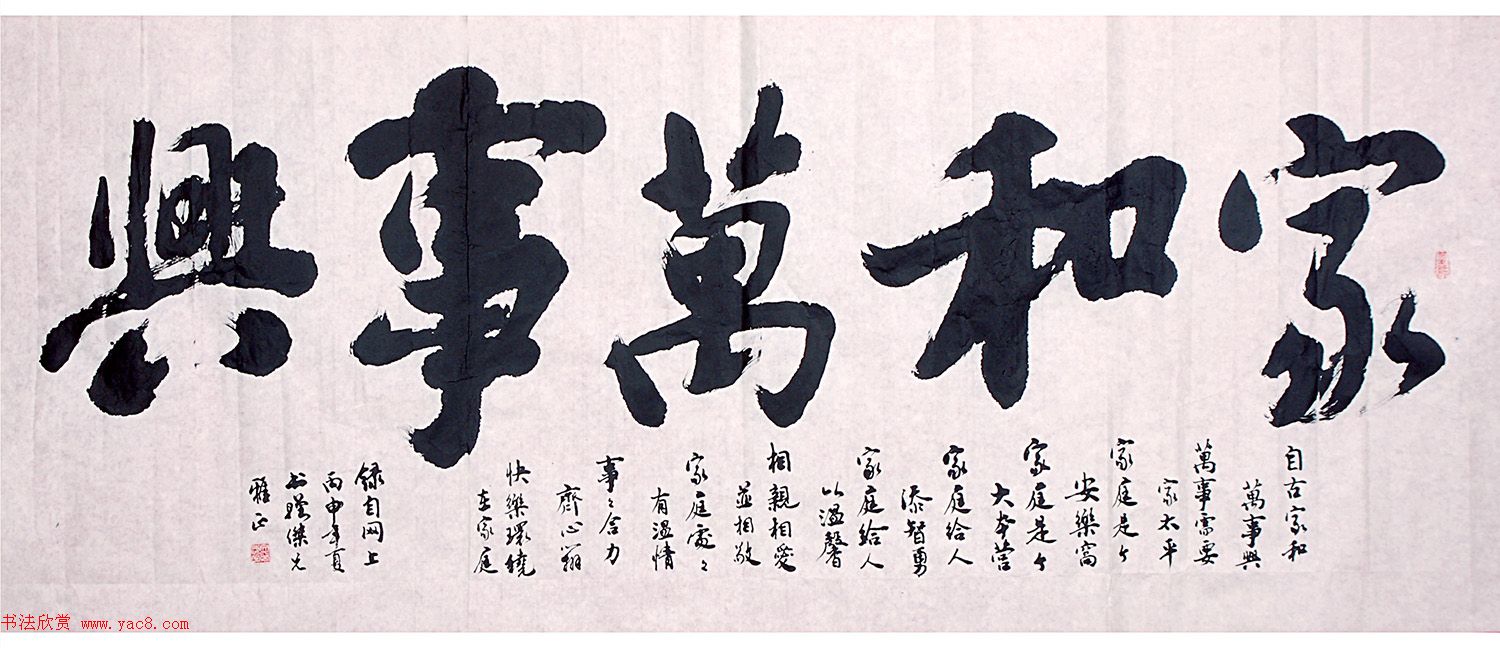 家和萬事興
自古家和
萬事興
萬事需要
家太平
家庭是个
安樂窩
家庭是个
大本营
家庭给人
添智勇
家庭给人
以温馨
相親相愛
並相敬
家庭處々
有温情
事々合力
齊心翱
快樂環繞
在家庭
録自网上
丙申年夏
书贈傑兄
雅正
书法欣赏 www.yac8.com